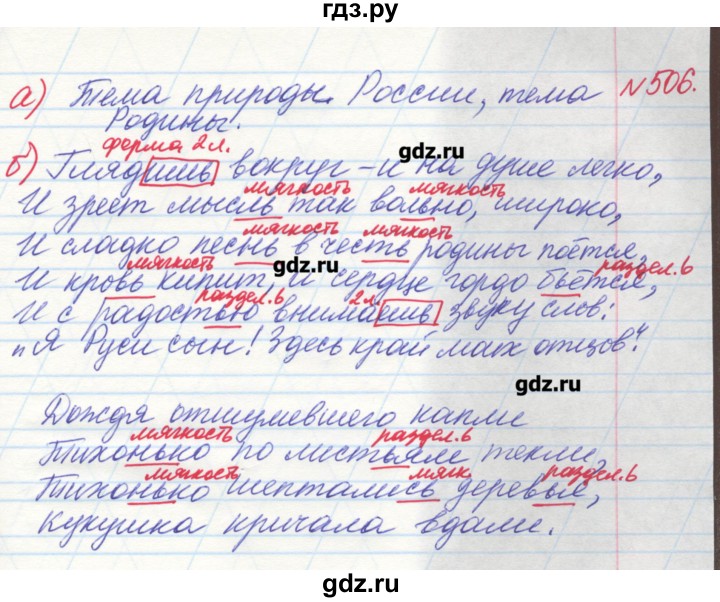 гдз.ру
а) Тема природы. России, тема №506.
Родины.
форма 2л.
б) Глядишь вокруг – и на душе легко,
gdz.ru
мягкость мягкость
И зреет мысль так вольно, широко,
мягкость мягкость
И сладко песнь в честь родины поётся,
мягкость gdz.ru раздел.ь
И кровь кипит, и сердце гордо бьётся,
раздел.ь 2л.
И с радостью внимаешь звуку слов:
"Я Руси сын! Здесь край моих отцов!"
gdz.ru
Дождя отшумевшего капли
мягкость раздел.ь
Тихонько по листьям текли,
мягкость мягк раздел.ь
Тихонько шептались деревья,
Кукушка кричала вдали.
gdz.ru